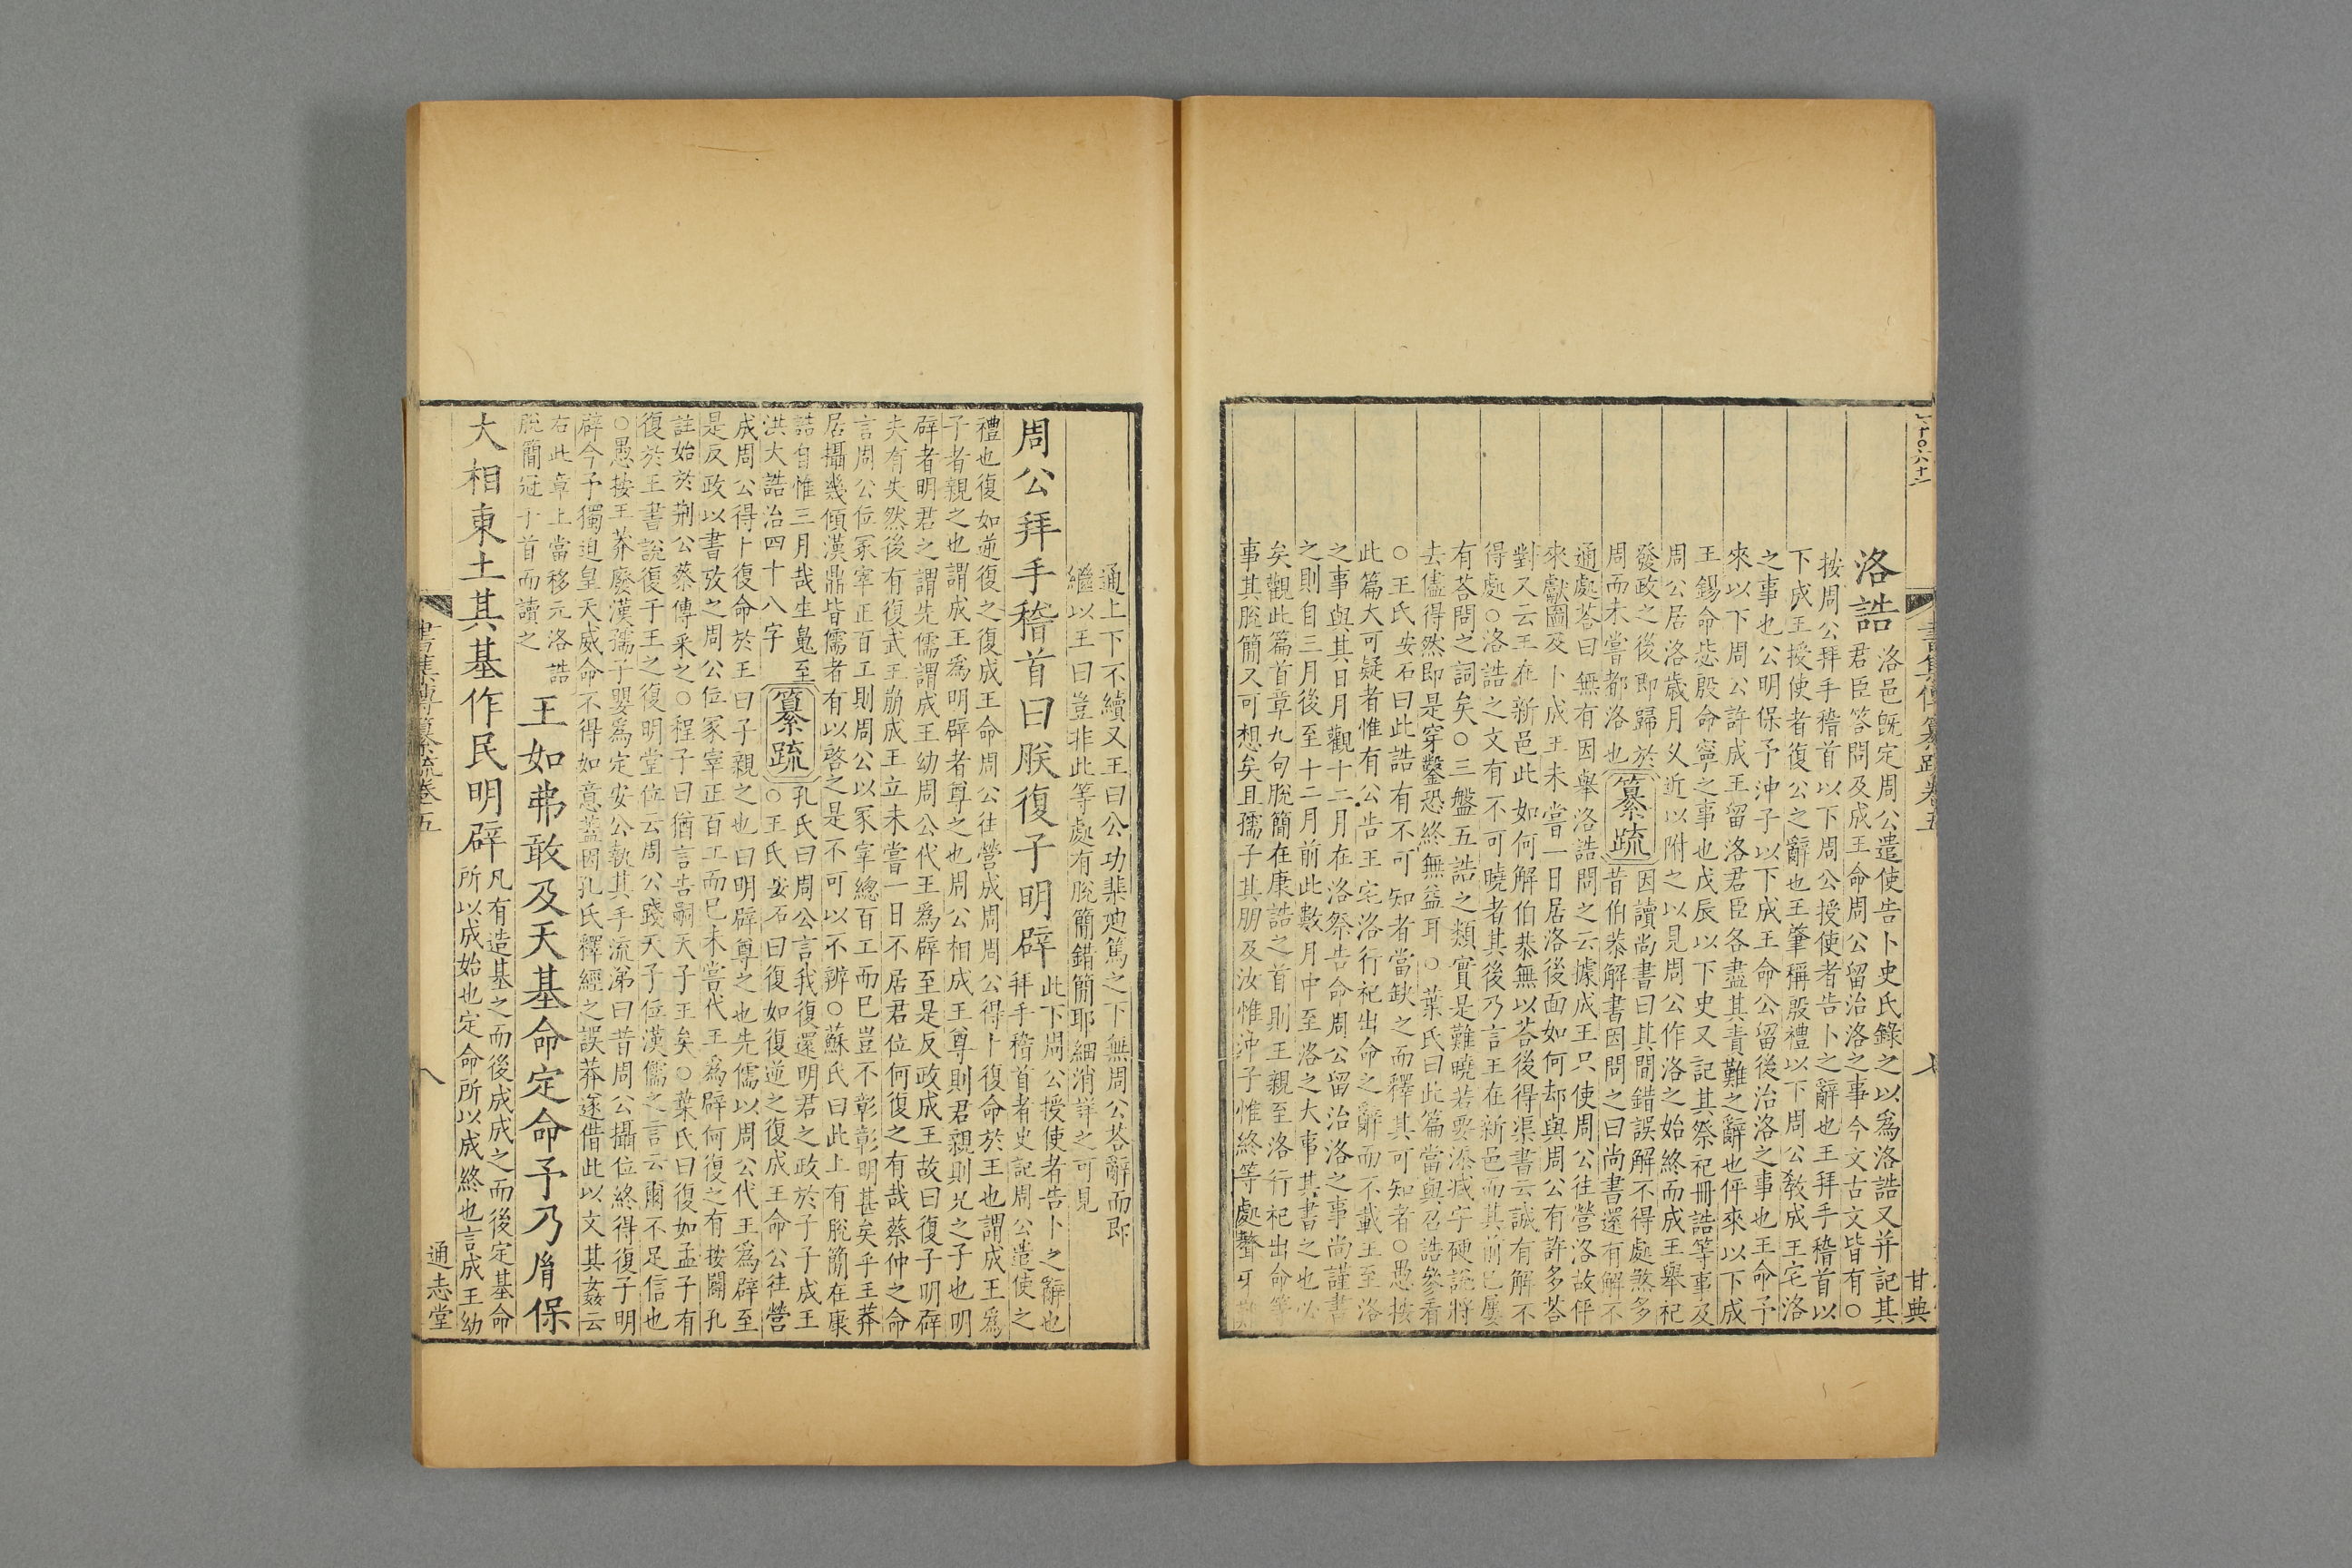 書集傳纂疏卷五
甘典
洛誥
洛邑旣定周公遣使告卜史氏錄之以爲洛誥又并記其
君臣答問及成王命周公留治洛之事今文古文皆有○
按周公拜手稽首以下周公授使者告卜之辭也王拜手稽首以
下成王授使者復公之辭也王肇稱殷禮以下周公敎成王宅洛
之事也公明保予沖子以下成王命公留後治洛之事也王命予
來以下周公許成王留洛君臣各盡其責難之辭也伻來以下成
王錫命毖殷命寧之事也戊辰以下史又記其祭祀冊誥等事及
周公居洛歲月乂近以附之以見周公作洛之始終而成王舉祀
發政之後卽歸於
周而未嘗都洛也
纂疏
因讀尚書曰其間錯誤解不得處煞多
昔伯恭解書因問之曰尚書還有解不
通處荅曰無有因舉洛誥問之云據成王只使周公往營洛故伻
來獻圖及卜成王未嘗一日居洛後面如何却與周公有許多荅
對又云王在新邑此如何解伯恭無以荅後得渠書云誠有解不
得處○洛誥之文有不可曉者其後乃言王在新邑而其前已屢
有荅問之詞矣○三盤五誥之類實是難曉若要添减字硬說將
去儘得然卽是穿鑿恐終無益耳○葉氏曰此篇當與召誥參看
○王氏安石曰此誥有不可知者當缺之而釋其可知者○愚按
此篇大可疑者惟有公告王宅洛行祀出命之辭而不載王至洛
之事與其日月觀十二月在洛祭告命周公留治洛之事尚謹書
之則自三月後至十二月前此數月中至洛之大事其書之也必
矣觀此篇首章九句脫簡在康誥之首則王親至洛行祀出命等
事其脫簡又可想矣且孺子其朋及汝惟沖子惟終等處聱牙
通上下不續又王曰公功棐迪篤之下無周公荅辭而卽
繼以王曰豈非此等處有脫簡錯簡耶細消詳之可見
周公拜手稽首曰朕復子明辟
此下周公授使者告卜之辭也
拜手稽首者史記周公遣使之
禮也復如逆復之復成王命周公往營成周周公得卜復命於王也謂成王爲
子者親之也謂成王爲明辟者尊之也周公相成王尊則君親則兄之子也明
辟者明君之謂先儒謂成王幼周公代王爲辟至是反政成王故曰復子明辟
夫有失然後有復武王崩成王立未嘗一日不居君位何復之有哉蔡仲之命
言周公位冢宰正百工則周公以冢宰總百工而已豈不彰彰明甚矣乎王莽
居攝幾傾漢鼎皆儒者有以啓之是不可以不辨○蘇氏曰此上有脫簡在康
誥自惟三月哉生魄至
洪大誥治四十八字
纂疏
孔氏曰周公言我復還明君之政於子子成王
○王氏安石曰復如復逆之復成王命公往營
成周公得卜復命於王曰子親之也曰明辟尊之也先儒以周公代王爲辟至
是反政以書攷之周公位冢宰正百工而已未嘗代王爲辟何復之有按闢孔
註始於荆公蔡傳采之○程子曰猶言告嗣天子王矣○葉氏曰復如孟子有
復於王書說復子王之復明堂位云周公踐天子位漢儒之言云爾不足信也
○愚按王莽廢漢孺子嬰爲定安公執其手流涕曰昔周公攝位終得復子明
辟今予獨迫皇天威命不得如意蓋因孔氏釋經之誤莽遂借此以文其姦云
右此章上當移元洛誥
脫簡冠于首而讀之
王如弗敢及天基命定命予乃胤保
大相東土其基作民明辟
凡有造基之而後成成之而後定基命
所以成始也定命所以成終也言成王幼
書集傳纂疏卷五
八
通志堂